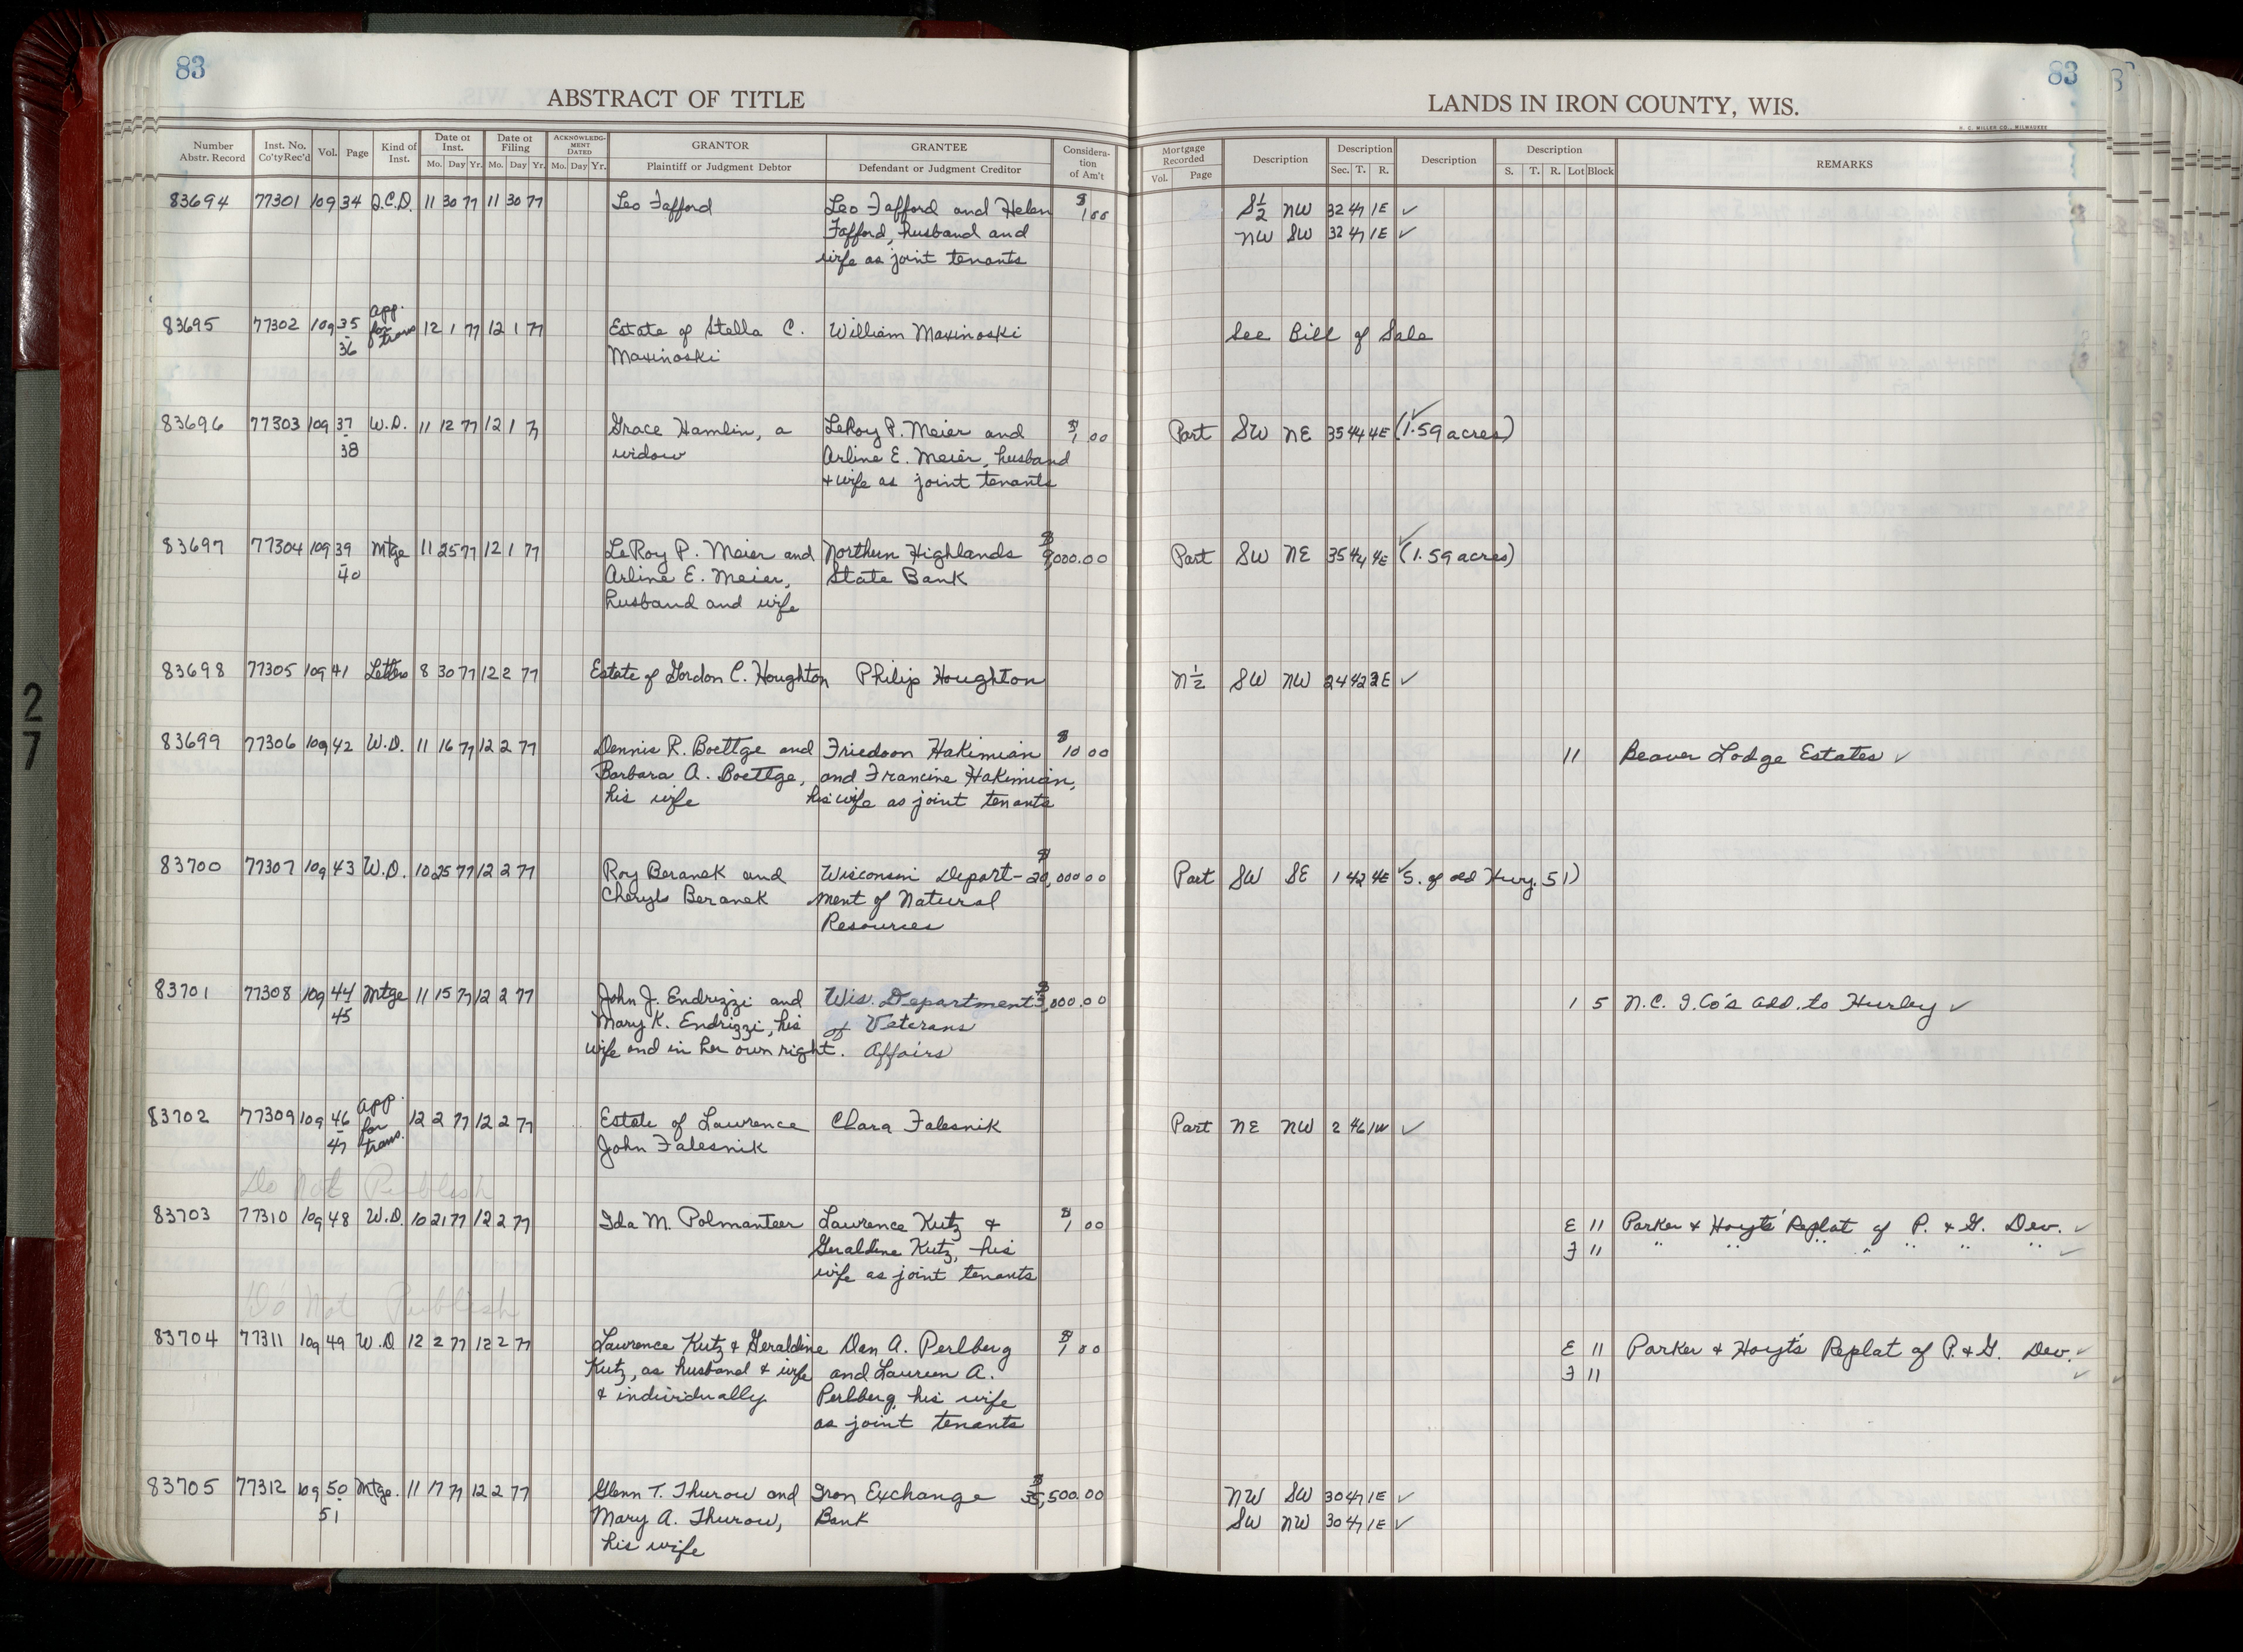 83
ABSTRACT OF TITLE
Number Abstr. Record
Inst. No. Co'ty Rec'd
Vol.
Page
Kind of Inst.
Date of Inst.
Mo. Day Yr.
Date of Filing
Mo. Day Yr.
ACKNOWLEDGMENT DATED
Mo. Day Yr.
GRANTOR
Plaintiff or Judgment Debtor
GRANTEE
Defendant or Judgment Creditor
Consideration of Am't
83694 77301 109 34 Q.C.D. 11 30 77 11 30 77 Leo Fafford Leo Fafford and Helen $1.00
Fafford, husband and
wife as joint tenants
83695 77302 109 35-36 app. for trans 12 1 77 12 1 77 Estate of Stella C. William Maxinoski
Maxinoski
83696 77303 109 37-38 W.D. 11 12 77 12 1 77 Grace Hamlin, a LeRoy P. Meier and $1.00
widow Arline E. Meier, husband
& wife as joint tenants
83697 77304 109 39-40 Mtge 11 25 77 12 1 77 LeRoy P. Meier and Northern Highlands $9,000.00
Arline E. Meier, State Bank
husband and wife
83698 77305 109 41 Letters 8 30 77 12 2 77 Estate of Gordon C. Houghton Philip Houghton
83699 77306 109 42 W.D. 11 16 77 12 2 77 Dennis R. Boettge and Friedoon Hakimian $10.00
Barbara A. Boettge, and Francine Hakimian,
his wife his wife as joint tenants
83700 77307 109 43 W.D. 10 25 77 12 2 77 Roy Beranek and Wisconsin Depart- $20,000.00
Cheryls Beranek ment of Natural
Resources
83701 77308 109 44 45 Mtge 11 15 77 12 2 77 John J. Endrizzi and Wis. Department $3,000.00
Mary K. Endrizzi, his of Veterans
wife and in her own right. Affairs
83702 77309 109 46-47 app. for trans. 12 2 77 12 2 77 Estate of Lawrence Clara Falesnik
John Falesnik
Do Not Publish
83703 77310 109 48 W.D. 10 21 77 12 2 77 Ida M. Polmanteer Lawrence Kutz & $1.00
Geraldine Kutz, his
wife as joint tenants
Do Not Publish
83704 77311 109 49 W.D 12 2 77 12 2 77 Lawrence Kutz & Geraldine Dan A. Perlberg $1.00
Kutz, as husband & wife and Laureen A.
& individually Perlberg, his wife
as joint tenants
83705 77312 109 50-51 Mtge. 11 17 77 12 2 77 Glenn T. Thurow and Iron Exchange $35,500.00
Mary A. Thurow, Bank
his wife
83
LANDS IN IRON COUNTY, WIS.
H. C. MILLER CO., MILWAUKEE
Mortgage Recorded
Vol. Page
Description
Description
Sec. T. R.
Description
Description
S. T. R. Lot Block
REMARKS
S½ NW 32 47 1E ✓
NW SW 32 47 1E ✓
See Bill of Sale
Part SW NE 35 44 4E (1.59 acres) ✓
Part SW NE 35 44 4E (1.59 acres) ✓
N½ SW NW 24 42 3E ✓
11 Beaver Lodge Estates ✓
Part SW SE 1 42 4E ✓ S. of old Hwy. 51)
1 5 N.C. I. Co's add. to Hurley ✓
Part NE NW 2 46 1W ✓
E 11 Parker & Hoyts' Replat of P. & G. Dev. ✓
F 11 " " " " " " " ✓
E 11 Parker & Hoyt's Replat of P. & G. Dev. ✓
F 11 ✓
NW SW 30 47 1E ✓
SW NW 30 47 1E ✓
27